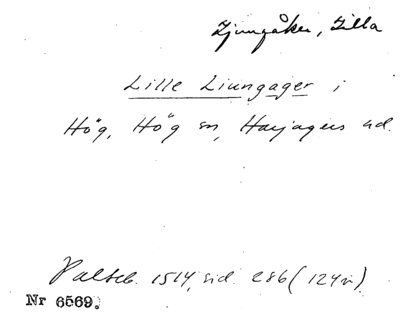 Ljungåker, Lilla
Lille Liungager i
Hög, Hög sn, Harjagers hd.
Palteb. 1514, sid. 286 (124v).
Nr 6569.